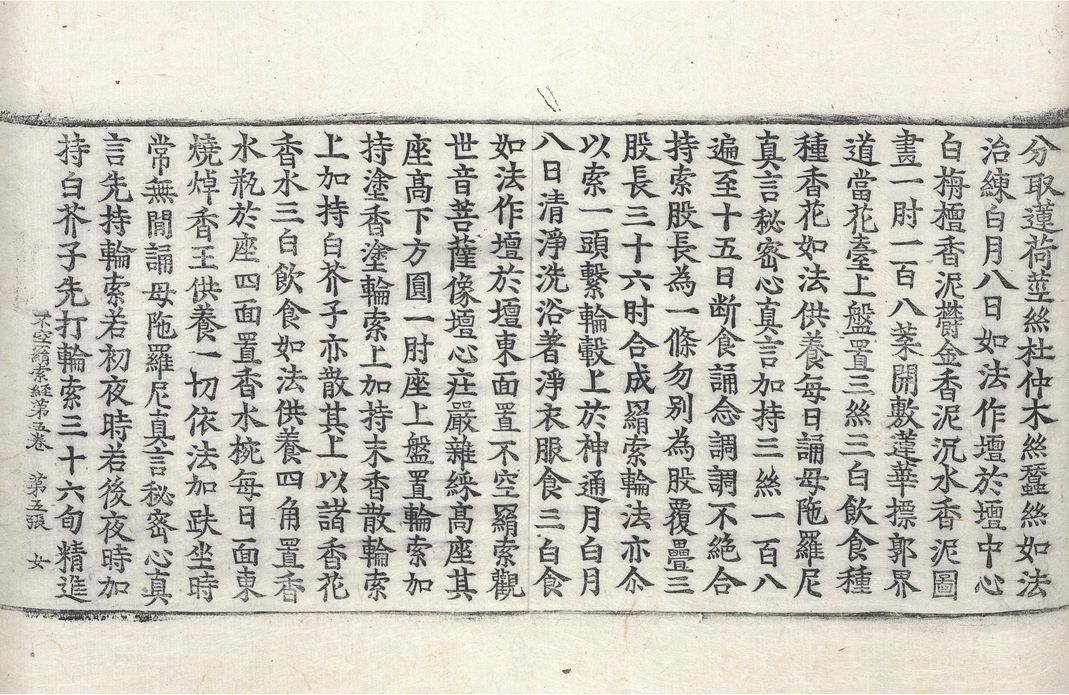 分取蓮荷莖絲杜仲木絲蠶絲如法
治練白月八日如法作壇於壇中心
白栴檀香泥欝金香泥沉水香泥圖
畫一肘一百八葉開敷蓮華摽郭界
道當花臺上盤置三絲三白飲食種
種香花如法供養每日誦母陁羅尼
真言秘密心真言加持三絲一百八
遍至十五日断食誦念調調不絕合
持索股長為一條勿别為股覆疊三
股長三十六肘合成羂索輪法亦尒
以索一頭繫輪轂上於神通月白月
八日清淨洗浴著淨衣服食三白食
如法作壇於壇東面置不空羂索觀
世音菩薩像壇心庄嚴雜綵高座其
座高下方圓一肘座上盤置輪索加
持塗香塗輪索上加持末香散輪索
上加持白芥子亦散其上以諸香花
香水三白飲食如法供養四角置香
水瓶於座四面置香水椀每日面東
燒焯香王供養一切依法加趺坐時
常無間誦母陁羅尼真言秘密心真
言先持輪索若初夜時若後夜時加
持白芥子先打輪索三十六旬精進
不空羂索經第五卷 第五張 女